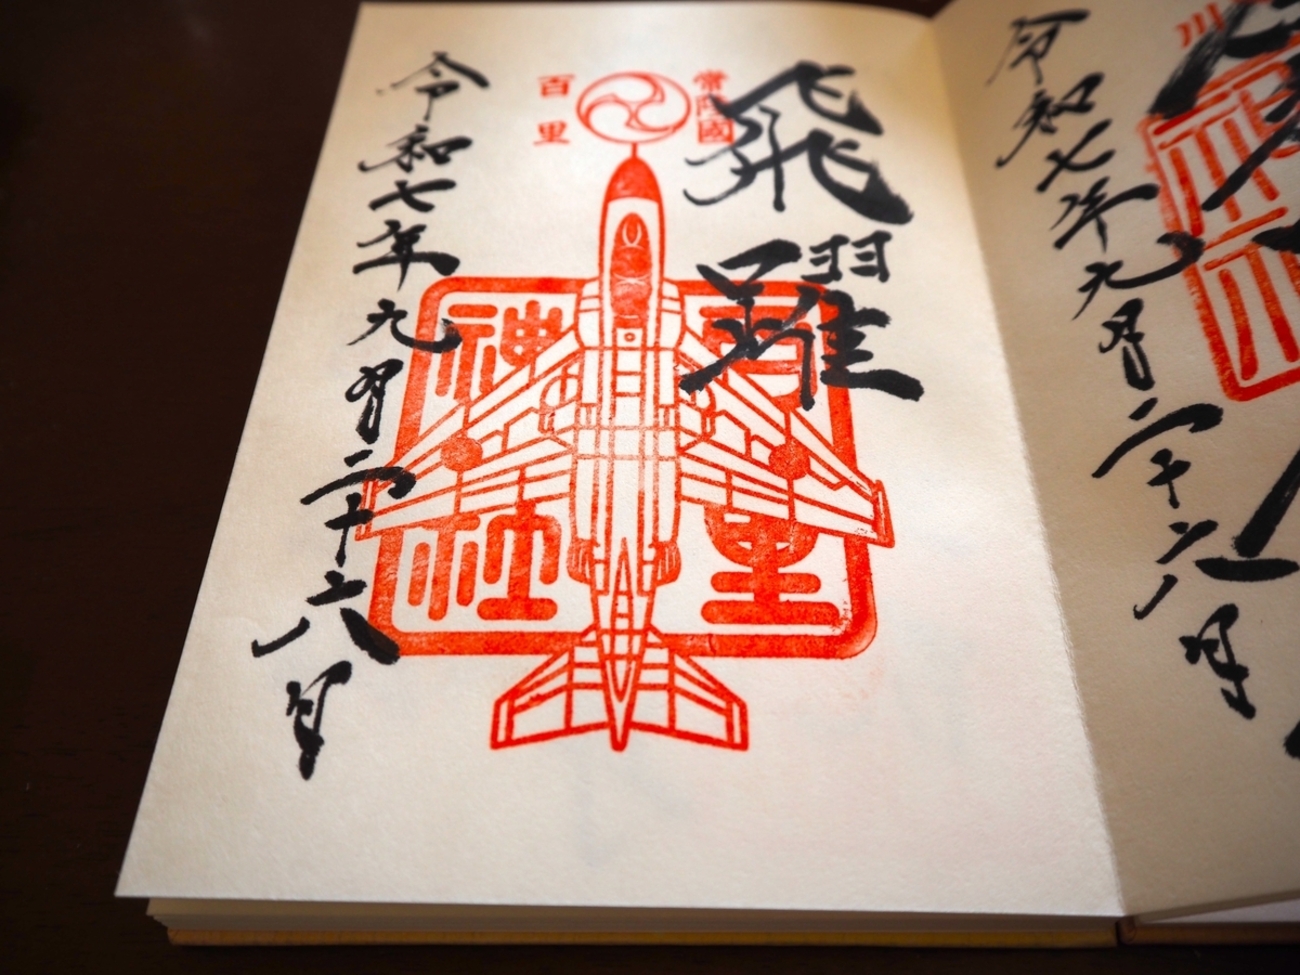 令和七年九月二十六日
飛躍
常陸國
百里
百里
神社
令和七年九月二十六日